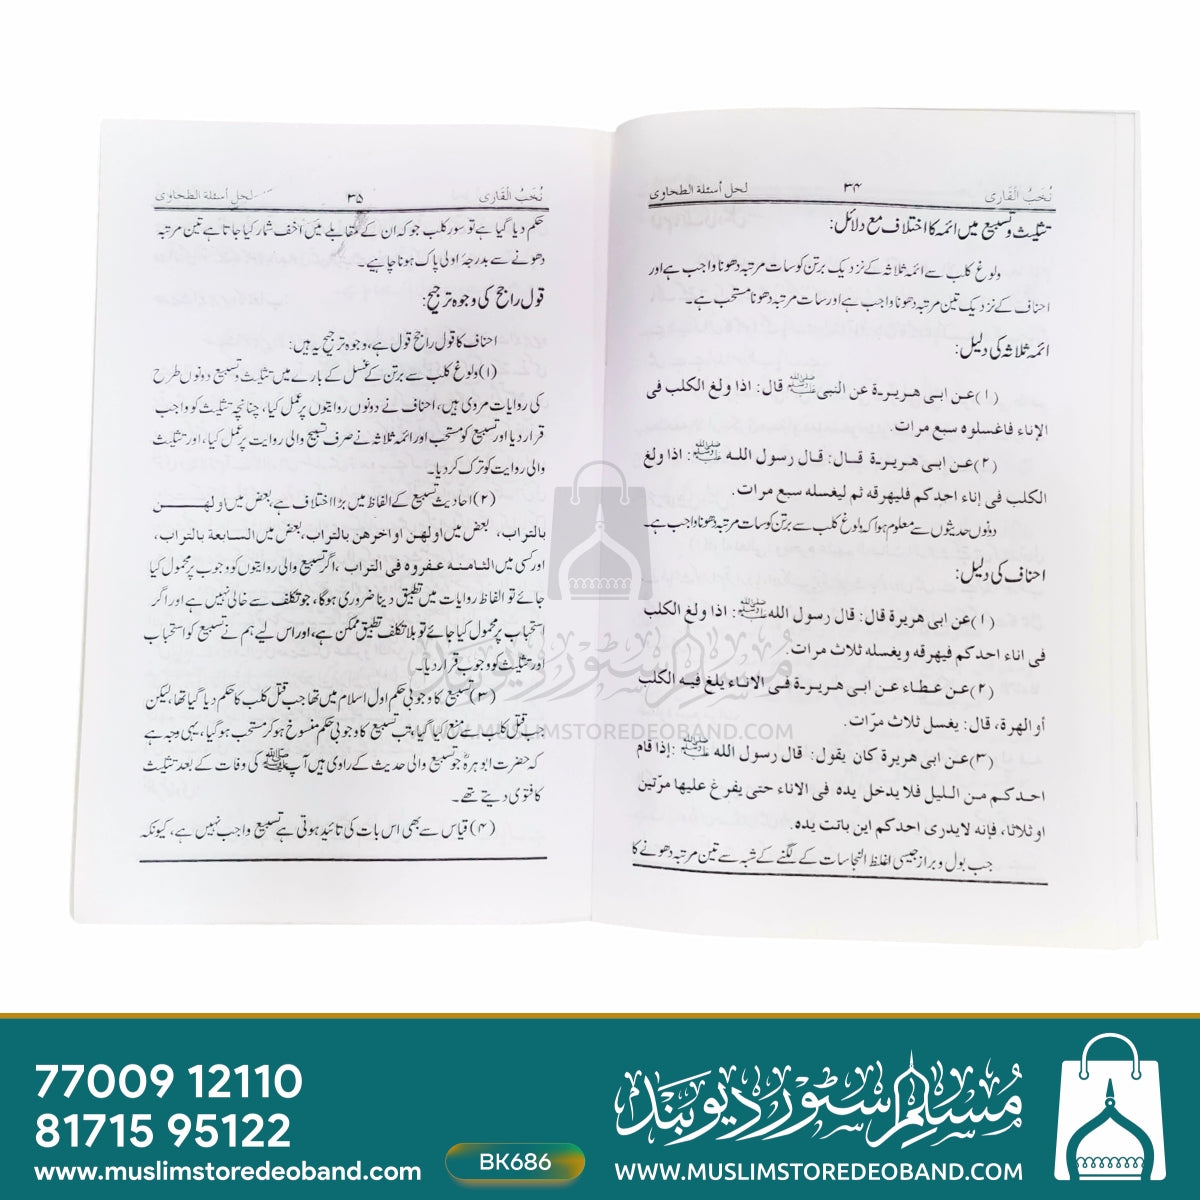 نُخَبُ الْقَارِی ۳۴ لحل أسئلة الطحاوی
تثلیث و تسبیع میں ائمہ کا اختلاف مع دلائل:
ولوغ کلب سے ائمہ ثلاثہ کے نزدیک برتن کو سات مرتبہ دھونا واجب ہے اور
احناف کے نزدیک تین مرتبہ دھونا واجب ہے اور سات مرتبہ دھونا مستحب ہے۔
ائمہ ثلاثہ کی دلیل:
(۱) عن ابی هریرة عن النبی ﷺ قال: اذا ولغ الکلب فی
الإناء فاغسلوه سبع مرات.
(۲) عن ابی هریرة قال: قال رسول الله ﷺ: اذا ولغ
الکلب فی إناء احدکم فلیهرقه ثم لیغسله سبع مرات.
دونوں حدیثوں سے معلوم ہوا کہ ولوغ کلب سے برتن کو سات مرتبہ دھونا واجب ہے۔
احناف کی دلیل:
(۱) عن ابی هریرة قال: قال رسول الله ﷺ: اذا ولغ الکلب
فی اناء احدکم فیهرقه ویغسله ثلاث مرات.
(۲) عن عطاء عن ابی هریرة فی الاناء یلغ فیه الکلب
أو الهرة، قال: یغسل ثلاث مرّات.
(۳) عن ابی هریرة کان یقول: قال رسول الله ﷺ: إذا قام
احدکم من اللیل فلا یدخل یده فی الاناء حتی یفرغ علیها مرّتین
او ثلاثا، فإنه لا یدری احدکم این باتت یده.
جب بول و براز جیسی اغلظ النجاسات کے لگنے کے شبہ سے تین مرتبہ دھونے کا
نُخَبُ الْقَارِی ۳۵ لحل أسئلة الطحاوی
حکم دیا گیا ہے تو سور کلب جو کہ ان کے مقابلے میں اخف شمار کیا جاتا ہے تین مرتبہ
دھونے سے بدرجۂ اولی پاک ہونا چاہیے۔
قول راجح کی وجوہ ترجیح:
احناف کا قول راجح قول ہے، وجوہ ترجیح یہ ہیں:
(۱) ولوغ کلب سے برتن کے غسل کے بارے میں تثلیث و تسبیع دونوں طرح
کی روایات مروی ہیں، احناف نے دونوں روایتوں پر عمل کیا، چنانچہ تثلیث کو واجب
قرار دیا اور تسبیع کو مستحب اور ائمہ ثلاثہ نے صرف تسبیع والی روایت پر عمل کیا، اور تثلیث
والی روایت کو ترک کر دیا۔
(۲) احادیث تسبیع کے الفاظ میں بڑا اختلاف ہے، بعض میں اولهن
بالتراب، بعض میں اولهن او اخرهن بالتراب، بعض میں السابعة بالتراب،
اور کسی میں الثامنه عفروه فی التراب، اگر تسبیع والی روایتوں کو وجوب پر محمول کیا
جائے تو الفاظ روایات میں تطبیق دینا ضروری ہوگا، جو تکلف سے خالی نہیں ہے اور اگر
استحباب پر محمول کیا جائے تو بلا تکلف تطبیق ممکن ہے، اور اس لیے ہم نے تسبیع کو استحباب
اور تثلیث کو وجوب قرار دیا۔
(۳) تسبیع کا وجوبی حکم اول اسلام میں تھا جب قتل کلب کا حکم دیا گیا تھا، لیکن
جب قتل کلب سے منع کیا گیا، تب تسبیع کا وجوبی حکم منسوخ ہو کر مستحب ہو گیا، یہی وجہ ہے
کہ حضرت ابو ہریرہؓ جو تسبیع والی حدیث کے راوی ہیں آپ ﷺ کی وفات کے بعد تثلیث
کا فتوی دیتے تھے۔
(۴) قیاس سے بھی اس بات کی تائید ہوتی ہے تسبیع واجب نہیں ہے، کیونکہ
مسلم سٹور دیوبند
MUSLIMSTOREDEOBAND.COM
77009 12110
81715 95122
www.muslimstoredeoband.com
BK686
مسلم سٹور دیوبند
WWW.MUSLIMSTOREDEOBAND.COM